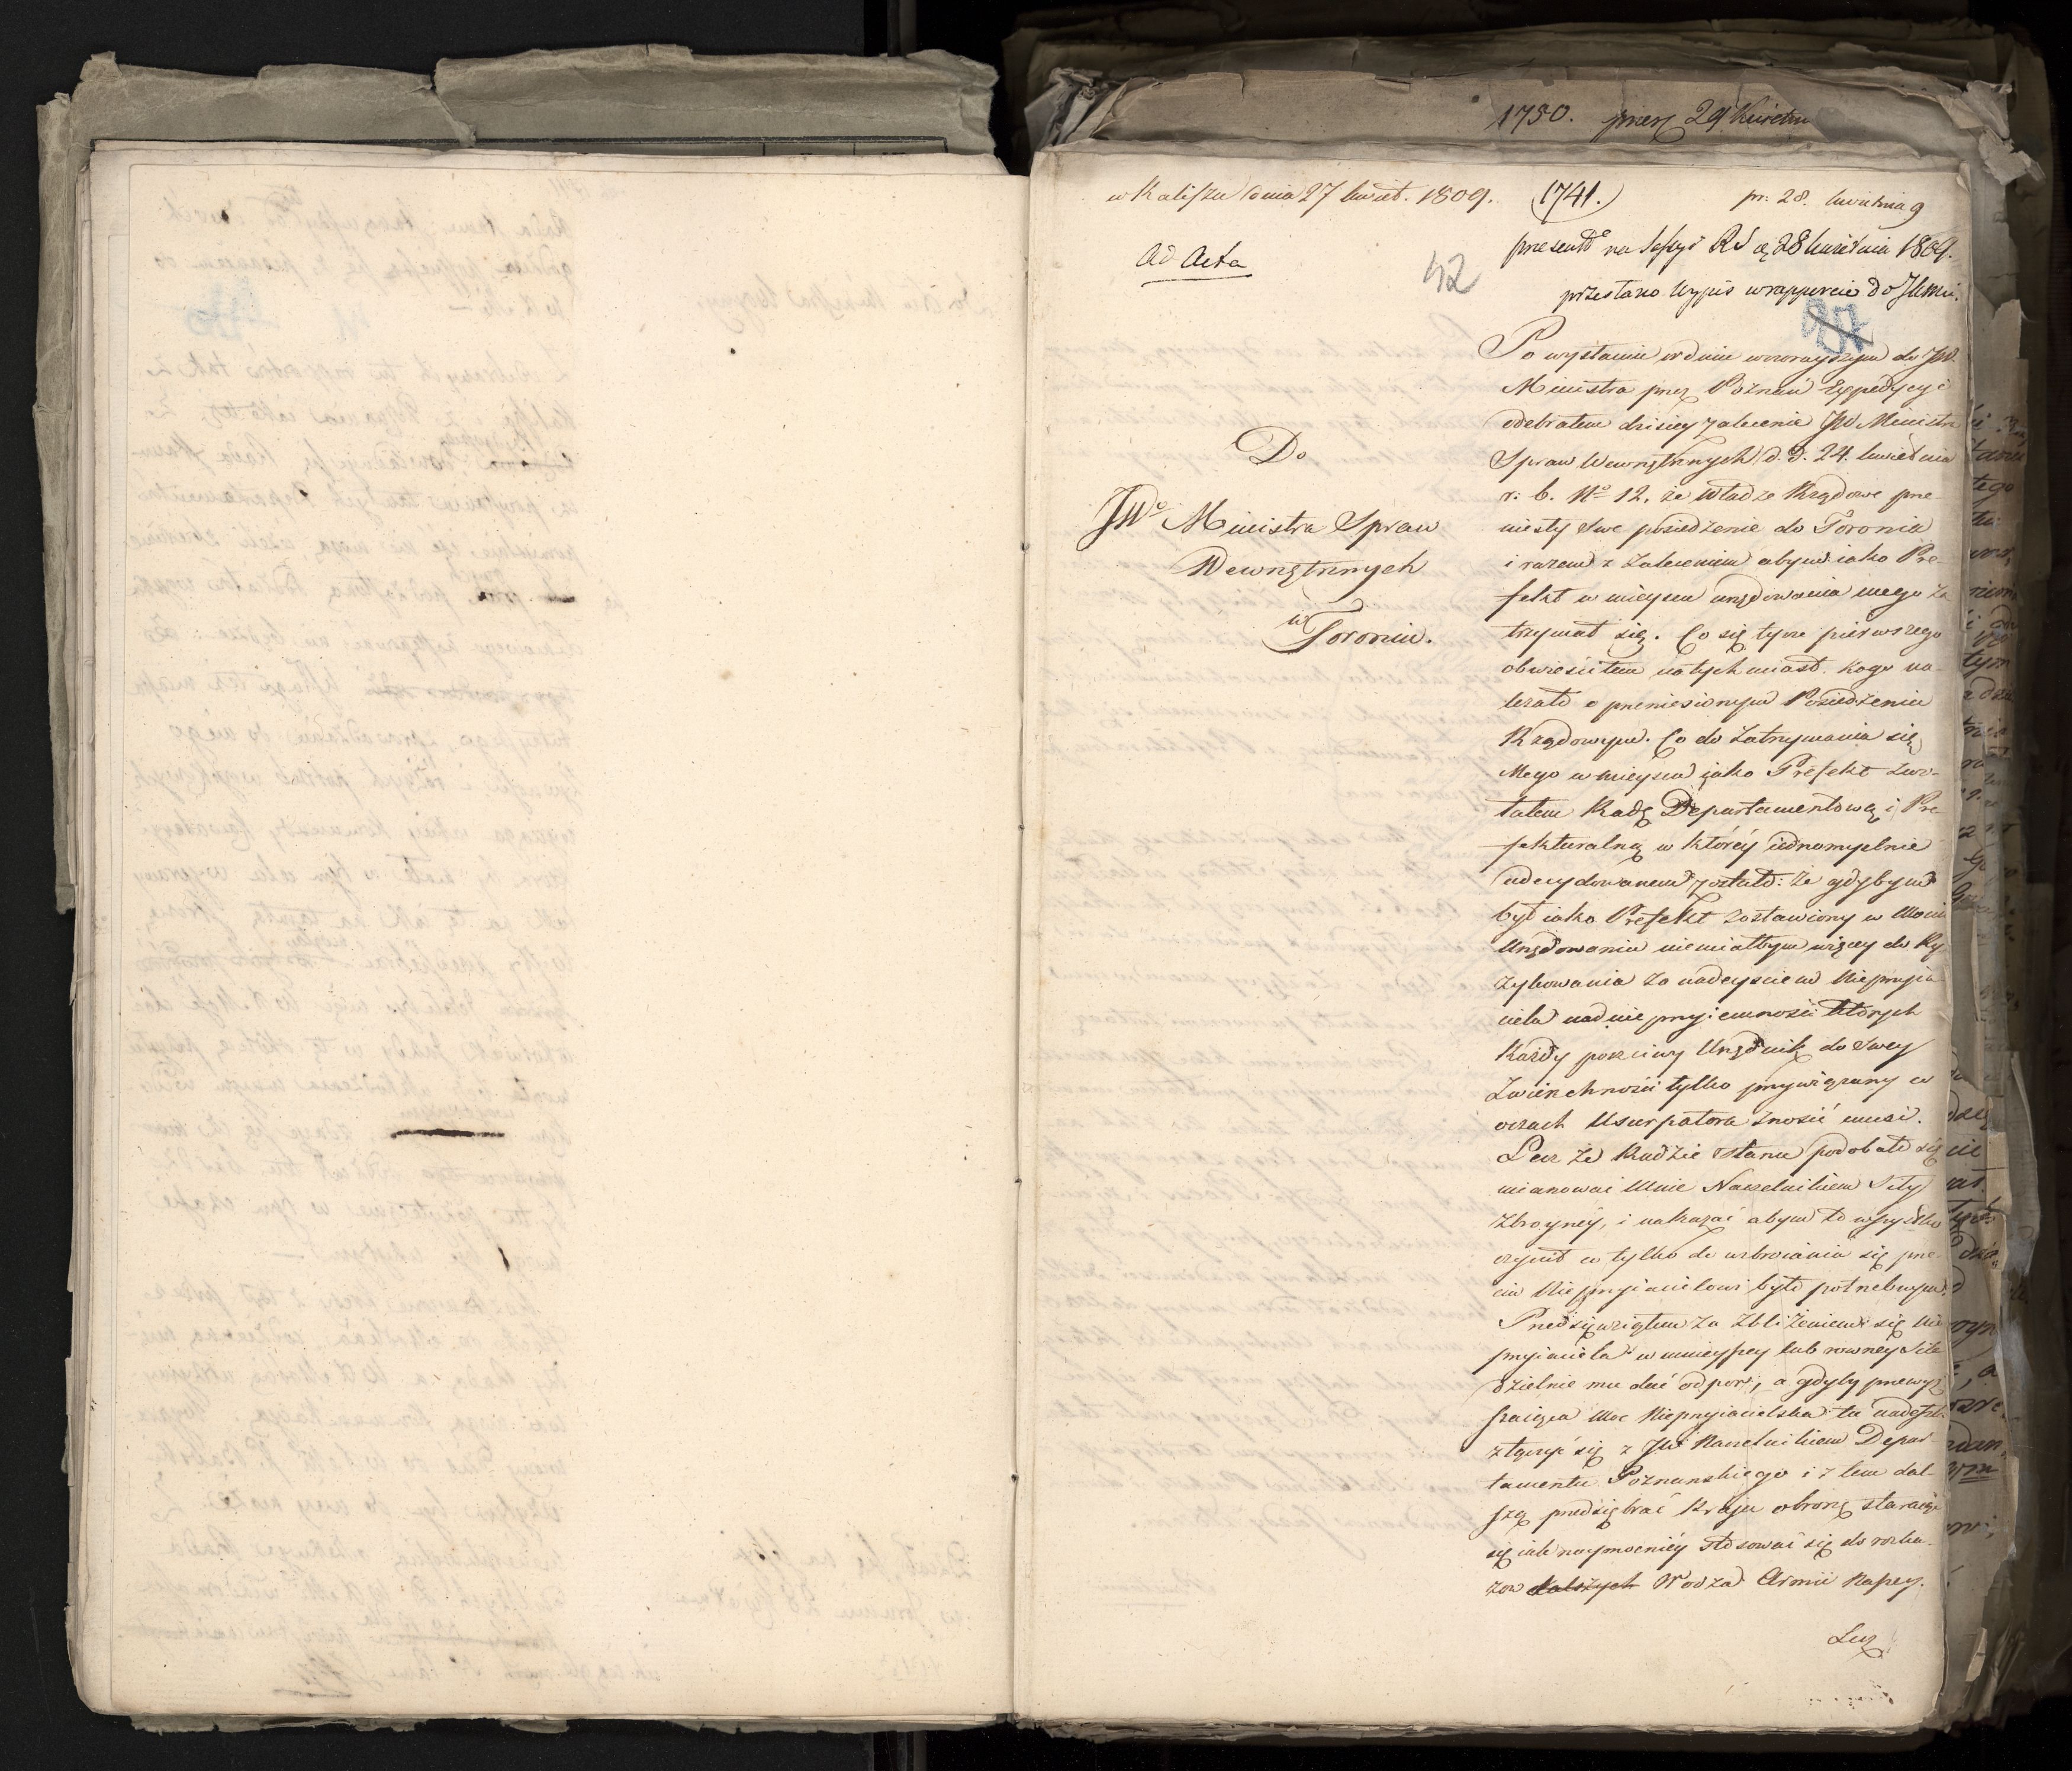 1750. prez 29 Kwietn
w Kaliszu dnia 27 kwiet. 1809.
1741.
pr: 28. kwietnia 9
Ad Acta
42
presentt na Sessyi RS d 28 kwietnia 1809.
przesłano Wypis w rapporcie do JKMci.
37
Po wysłaniu w dniu wczorayszym do JW.
Ministra przez Poznań Expedycyi
odebrałem dzisiey zalecenie JW Ministra
Spraw Wewnętrznych d. d. 24. kwietnia
r: b. No 12. że Władze Rządowe prze-
niosły swe posiedzenie do Torunia
i razem z zaleceniem abym iako Pre-
fekt w mieyscu urzędowania mego za
trzymał się. Co się tycze pierwszego
obwieściłem natychmiast kogo na-
leżało o przeniesionym Posiedzeniu
Rządowym. Co do zatrzymania się
Mego w mieyscu jako Prefekt zwo-
łałem Radę Departamentową i Pre
fekturalną w którey iednomyślnie
udecydowanem zostało: że gdybym
był iako Prefekt zostawiony w Moim
Urzędowaniu niemiałbym więcey do Ry
zykowania za nadeyściem Nieprzyja
ciela nad nieprzyjemności których
Każdy poczciwy Urzędnik do swey
Zwierzchności tylko przywiązany w
oczach Usurpatora znosić musi.
Lecz że Radzie Stanu podobało się
mianować Mnie Naczelnikiem Siły
Zbroyney, i nakazać abym to wszystko
czynił co tylko do uzbroiania się prze-
ciw Nieprzyjacielowi było potrzebnym.
Przedsięwziąłem za zbliżeniem się Nie
przyjaciela w mnieyszey lub rowney Sile
dzielnie mu dać odpor, a gdyby przewyż
szaiąca Moc Nieprzyjacielska tu nadeszła
złączyć się z JW Naczelnikiem Depar-
tamentu Poznanskiego i z tem dal-
szą przedsiębrać Kraju obronę staraiąc
się iak naymocniey stosować się do rozka-
zow dalszych Wodza Armii Naszey.
Lecz
Do
JWo Ministra Spraw
Wewnętrznych
w
Toroniu.